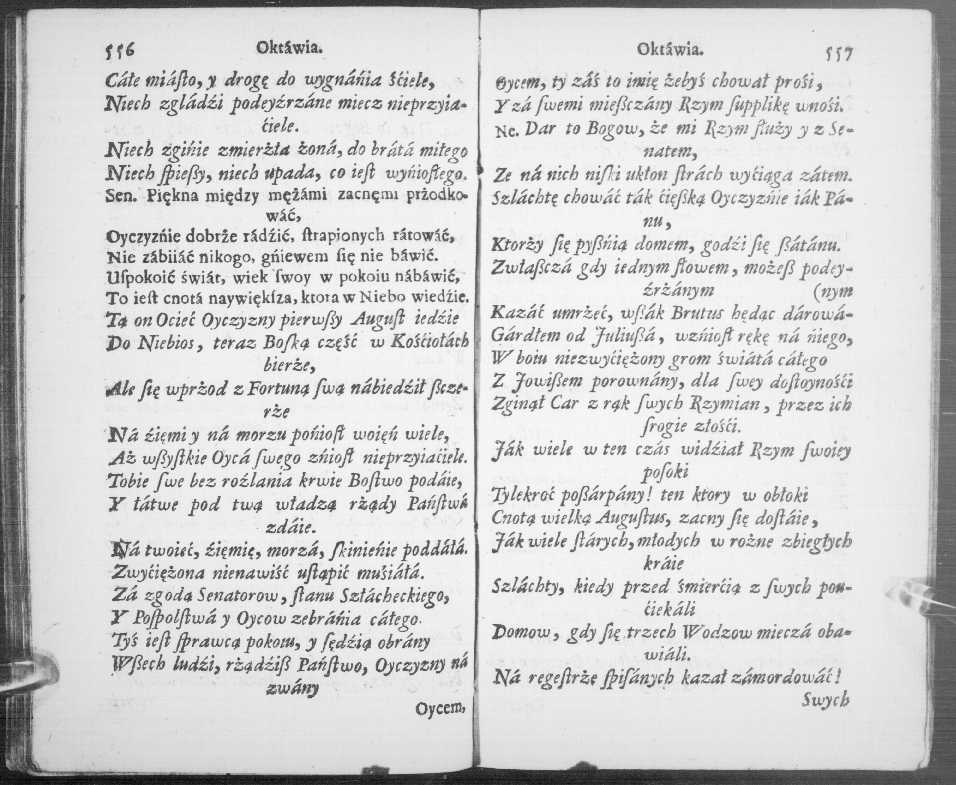 556 Oktáwia.
Cáłe miáſto, y drogę do wygnáńia śćiele,
Niech zgládźi podeyźrzáne miecz nieprzyia-
ćiele.
Niech zgińie zmierźła żoná, do brátá miłego
Niech ſpieſzy, niech upada, co ieſt wyńioſtego.
Sen. Piękna między mężámi zacnęmi przodko-
wáć,
Oyczyzńie dobrże rádźić, ſtrapionych rátowáć,
Nie zábiiáć nikogo, gńiewem ſię nie báwić.
Uſpokoić świát, wiek ſwoy w pokoiu nábáwić,
To ieſt cnotá naywiękſza, ktora w Niebo wiedźie.
Tą on Ociec Oyczyzny pierwſzy Auguſt iedźie
Do Niebios, teraz Boſką część w Kośćiołách
bierże,
Ale ſię wprżod z Fortuną ſwą nábiedźił ſzcze-
rże
Ná źięmi y ná morzu pońioſt woięń wiele,
Aż wſzyſtkie Oycá ſwego zńioſt nieprzyiaćiele.
Tobie ſwe bez rozlania krwie Boſtwo podáie,
Y łátwe pod twą władzą rżądy Páńſtwá
zdáie.
Ná twoieć, źięmię, morzá, ſkinieńie poddáłá.
Zwyćiężona nienawiść uſtąpić muśiáłá.
Zá zgodą Senatorow, ſtanu Szłácheckiego,
Y Poſpolſtwá y Oycow zebráńia cáłego.
Tyś ieſt ſprawcą pokoiu, y ſędźią obrány
Wſzech ludźi, rżądźiſz Páńſtwo, Oyczyzny ná
zwány
Oycem,
Oktáwia. 557
Oycem, ty záś to imię żebyś chował prośi,
Y zá ſwemi mieſzczány Rzym ſupplikę wnośi.
Ne. Dar to Bogow, że mi Rzym ſłuży y z Se-
natem,
Ze ná nich niſki ukłon ſtrách wyćiąga zátem.
Szláchtę chowáć ták ćięſzką Oyczyźnie iák Pá-
nu,
Ktorży ſię pyſzńią domem, godźi ſię ſzátánu.
Zwłaſzczá gdy iednym ſłowem, możeſz podey-
źrżánym (nym
Kazáć umrżeć, wſzák Brutus będąc dárowá-
Gárdłem od Juliuſzá, wzńioſt rękę ná ńiego,
W boiu niezwyćiężony grom świátá cáłego
Z Jowiſzem porownány, dla ſwey doſtoynośći
Zginął Car z rąk ſwych Rzymian, przez ich
ſrogie złośći.
Ják wiele w ten czás widźiał Rzym ſwoiey
poſoki
Tylekroć poſzárpány! ten ktory w obłoki
Cnotą wielką Auguſtus, zacny ſię doſtáie,
Ják wiele ſtárych, młodych w rożne zbiegłych
kráie
Szláchty, kiedy przed śmierćią z ſwych pou-
ćiekáli
Domow, gdy ſię trzech Wodzow mieczá oba-
wiáli.
Ná regeſtrżę ſpiſánych kazał zámordowáć!
Swych